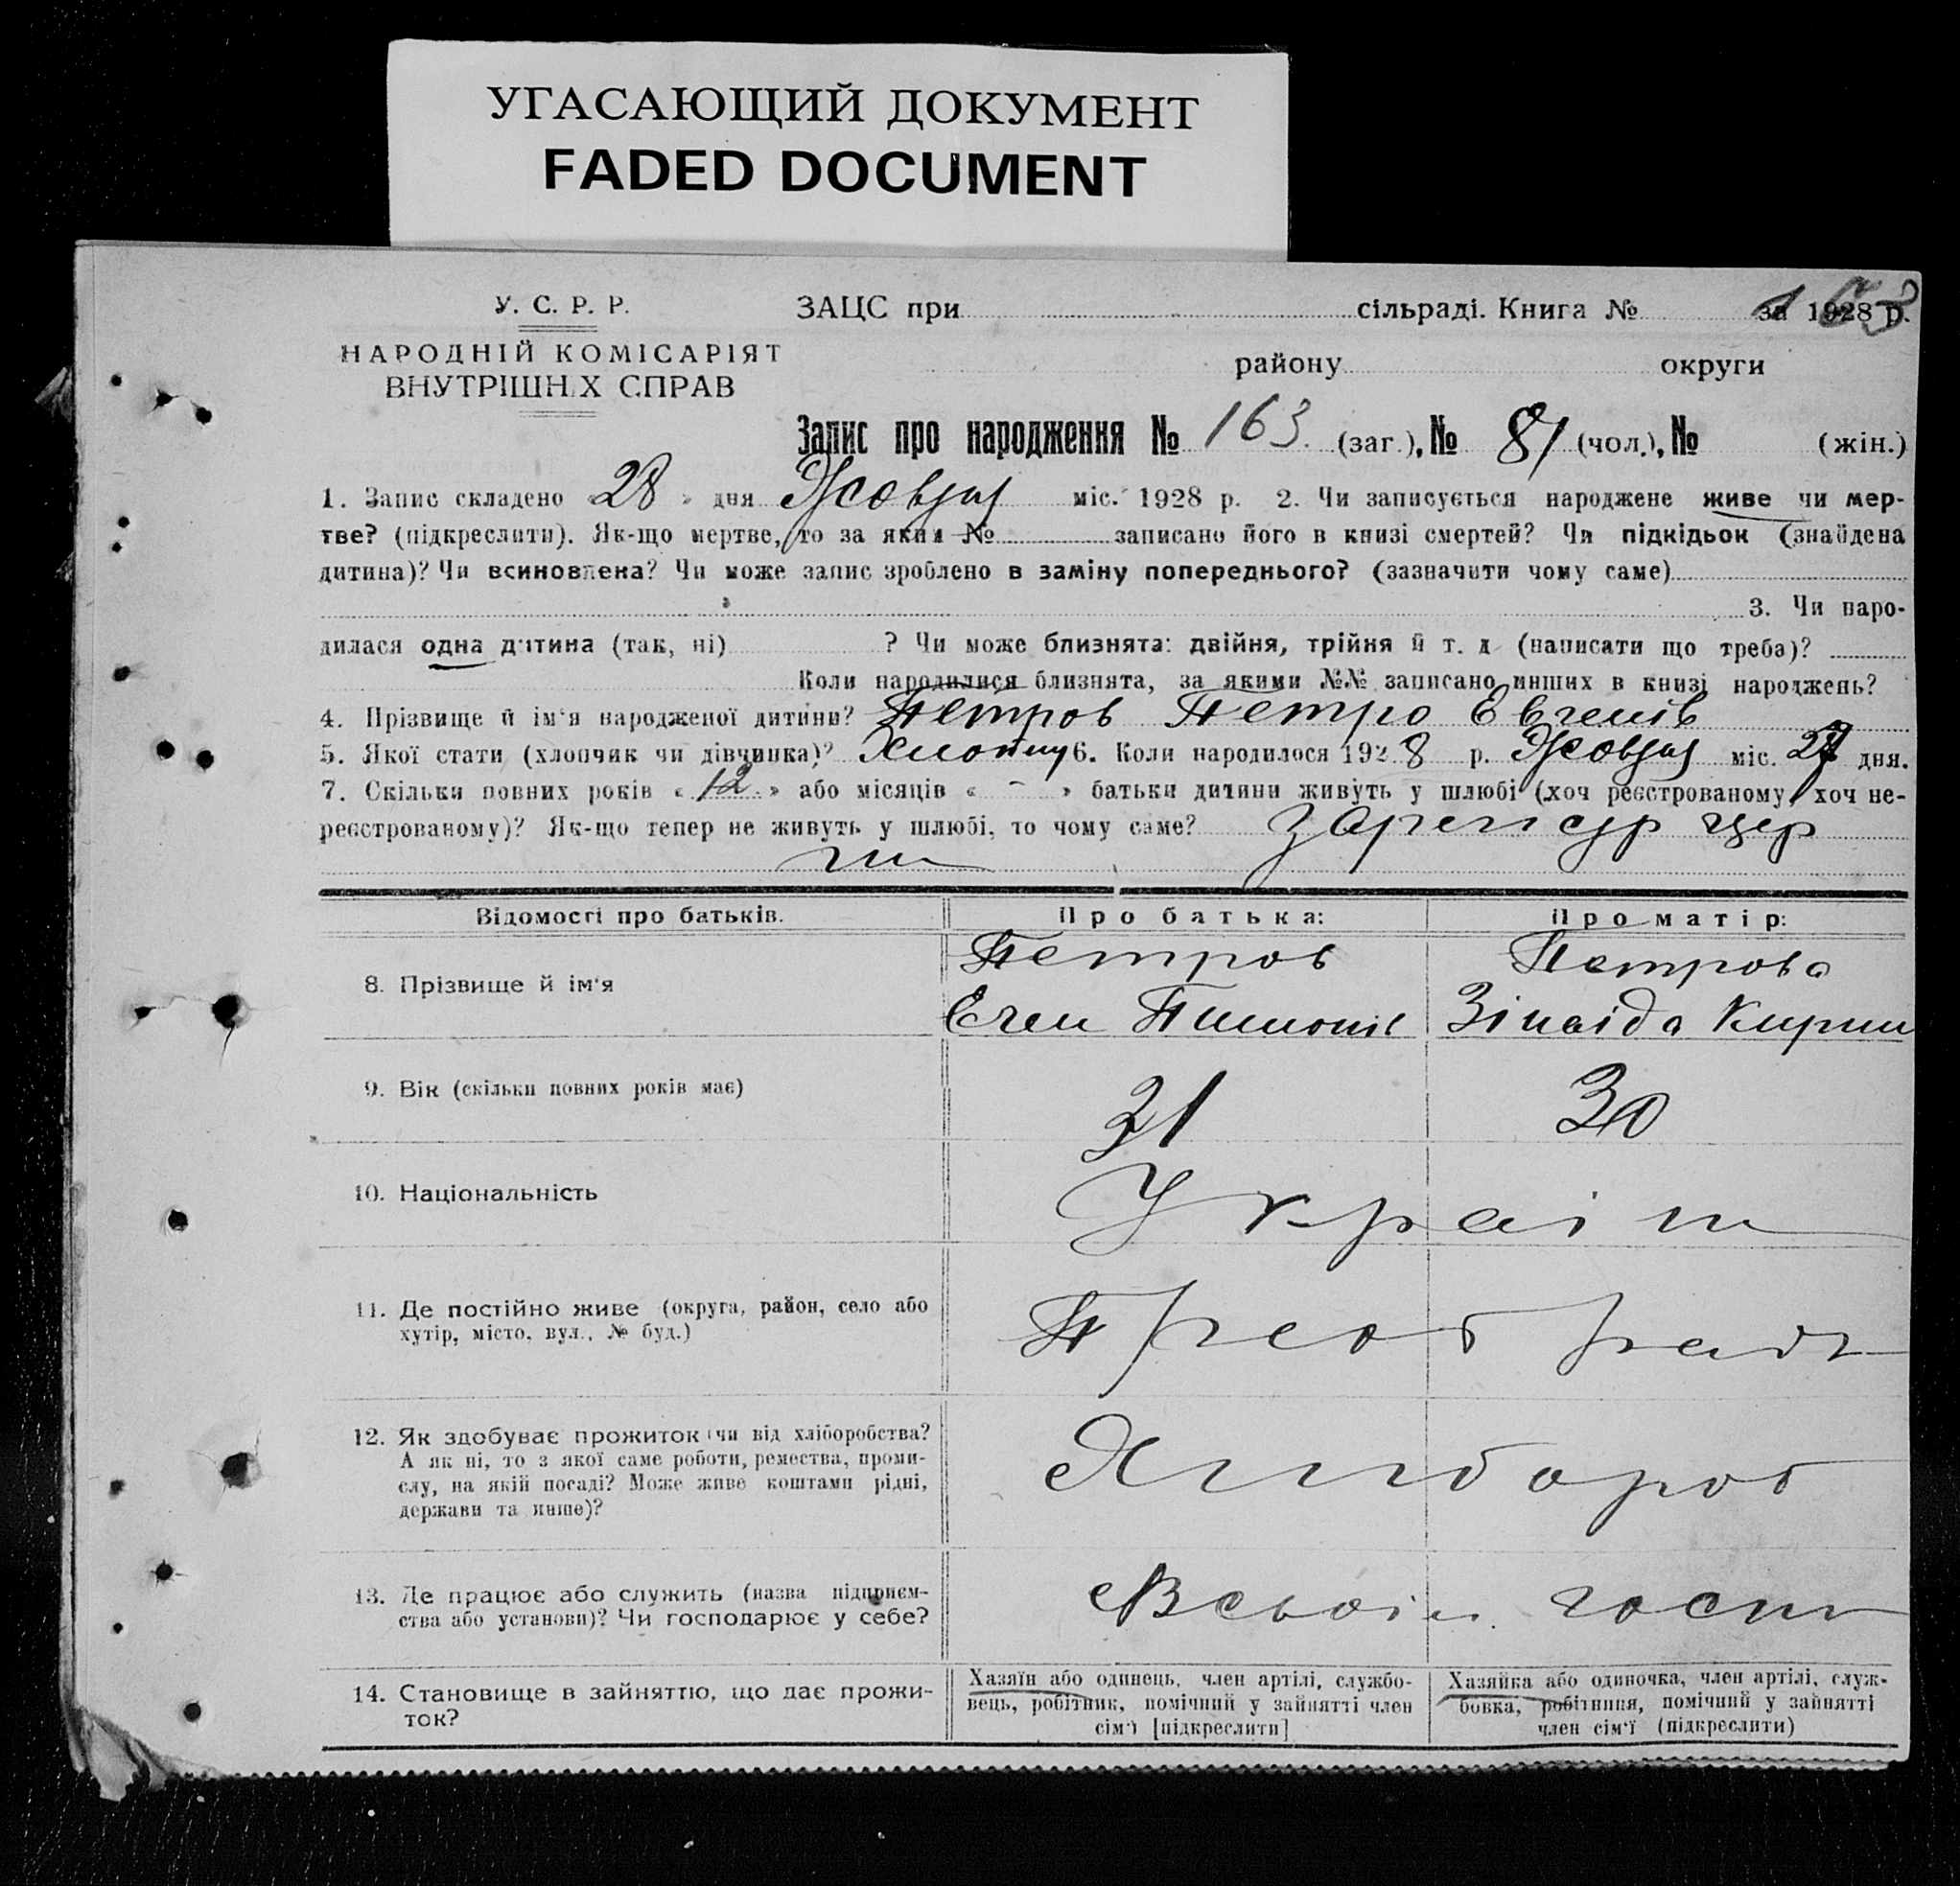 УГАСАЮЩИЙ ДОКУМЕНТ
FADED DOCUMENT
163
У. С. Р. Р.
НАРОДНІЙ КОМІСАРІЯТ
ВНУТРІШНІХ СПРАВ
ЗАЦС при сільраді. Книга № за 1928 р.
району округи
Запис про народження № 163 (заг.), № 81 (чол.), № (жін.)
1. Запис складено «28» дня Жовтня міс. 1928 р. 2. Чи записується народжене живе чи мер-
тве? (підкреслити). Як-що мертве, то за яким № записано його в книзі смертей? Чи підкідьок (знайдена
дитина)? Чи всиновлена? Чи може запис зроблено в заміну попереднього? (зазначити чому саме)
3. Чи наро-
дилася одна дитина (так, ні) ? Чи може близнята: двійня, трійня й т. д (написати що треба)?
Коли народилися близнята, за якими №№ записано инших в книзі народжень?
4. Прізвище й ім'я народженої дитини? Петров Петро Евгенів
5. Якої стати (хлопчик чи дівчинка)? Хлопчи 6. Коли народилося 1928 р. Жовтня міс. 27 дня.
7. Скільки повних років «12» або місяців « - » батьки дитини живуть у шлюбі (хоч реєстрованому, хоч не-
реєстрованому)? Як-що тепер не живуть у шлюбі, то чому саме?
Відомості про батьків. Про батька: Про матір:
8. Прізвище й ім'я Петров Петрова
Зінаїда
9. Вік (скільки повних років має) 31 30
10. Національність Україн
11. Де постійно живе (округа, район, село або
хутір, місто, вул., № буд.)
12. Як здобуває прожиток (чи від хліборобства?
А як ні, то з якої саме роботи, ремества, проми-
слу, на якій посаді? Може живе коштами рідні,
держави та инше)?
Хлібороб
13. Де працює або служить (назва підприєм-
ства або установи)? Чи господарює у себе?
Всьоім госп
14. Становище в зайняттю, що дає прожи-
ток?
Хазяїн або одинець, член артілі, службо-
вець, робітник, помічний у зайнятті член
сім'ї [підкреслити]
Хазяйка або одиночка, член артілі, служ-
бовка, робітниця, помічний у зайнятті
член сім'ї (підкреслити)